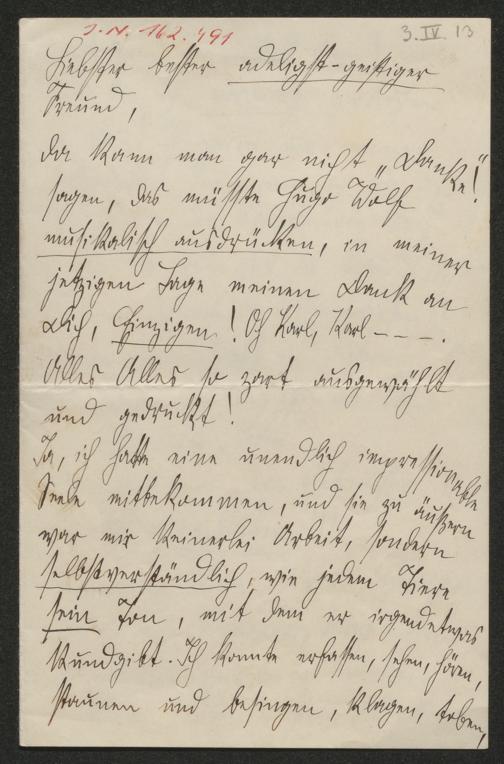 I. N. 162.791
3. IV. 13
Liebster bester adeligst-geistiger
Freund,
da kann man gar nicht „Danke!“
sagen, das müsste Hugo Wolf
musikalisch ausdrücken, in meiner
jetzigen Lage meinen Dank an
Dich, Einzigen! Oh Karl, Karl – – –.
Alles Alles so zart ausgewählt
und gedruckt!
Ja, ich hatte eine unendlich impressionable
Seele mitbekommen, und sie zu äußern
war mir keinerlei Arbeit, sondern
selbstverständlich, wie jedem Tiere
sein Ton, mit dem er irgendetwas
kundgibt. Ich konnte erfassen, sehen, hören,
staunen und besingen, klagen, toben,